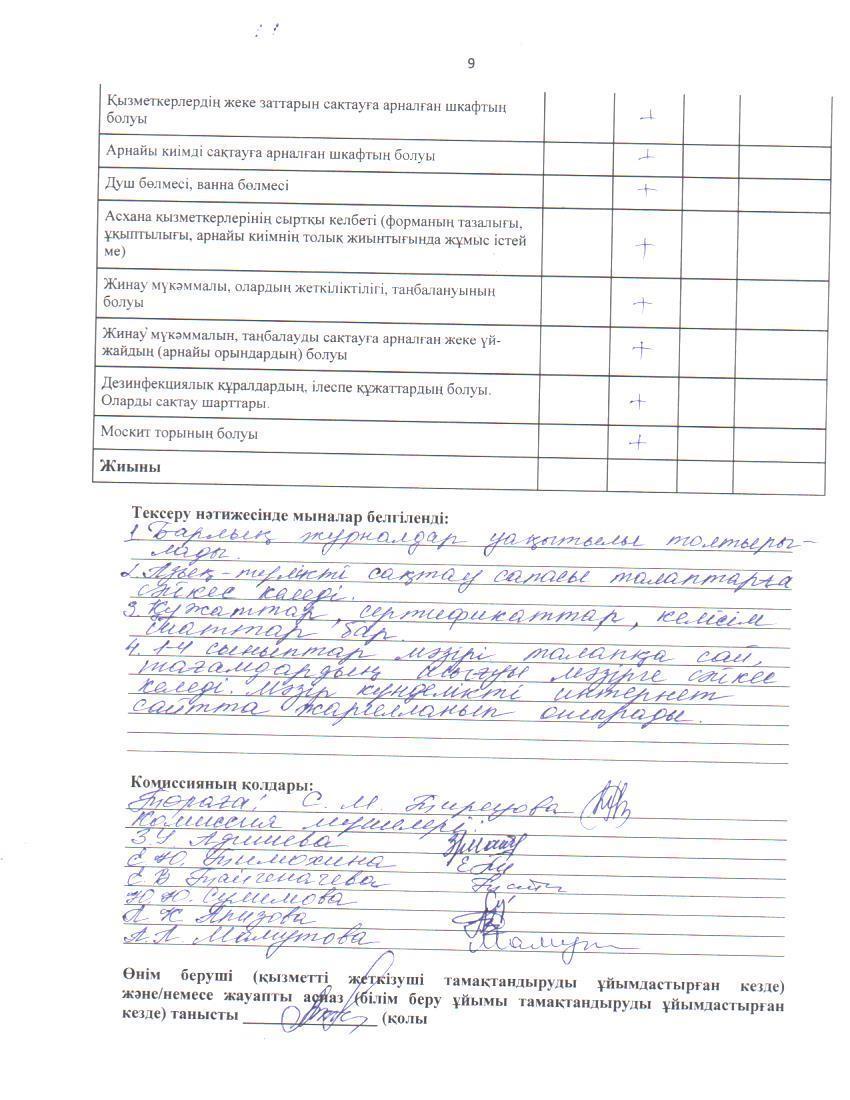 9
Қызметкерлердің жеке заттарын сақтауға арналған шкафтың
болуы
+
Арнайы киімді сақтауға арналған шкафтың болуы
+
Душ бөлмесі, ванна бөлмесі
+
Асхана қызметкерлерінің сыртқы келбеті (форманың тазалығы,
ұқыптылығы, арнайы киімнің толық жиынтығында жұмыс істей
ме)
+
Жинау мүкәммалы, олардың жеткіліктілігі, таңбалануының
болуы
+
Жинау мүкәммалын, таңбалауды сақтауға арналған жеке үй-
жайдың (арнайы орындардың) болуы
+
Дезинфекциялық құралдардың, ілеспе құжаттардың болуы.
Оларды сақтау шарттары.
+
Москит торының болуы
+
Жиыны
Тексеру нәтижесінде мыналар белгіленді:
1. Барлық журналдар уақытылы толтыры-
лады.
2. Азық-түлікті сақтау сапасы талаптарға
сәйкес келеді.
3. Құжаттар, сертификаттар, келісім
шаттар бар.
4. 1-4 сыныптар мәзірі талапқа сай,
тағамдардың шығуы мәзірге сәйкес
келеді. Мәзір күнделікті интернет
сайтта жарияланып отырады.
Комиссияның қолдары:
Төраға: С. М.
Комиссия мүшелері:
З.У. Адишева
Е.Ю. Тимохина
Е.В.
Ю.Ю. Сулимова
А.К. Аризова
А.А. Мамутова
Өнім беруші (қызметті жеткізуші тамақтандыруды ұйымдастырған кезде)
және/немесе жауапты аспаз (білім беру ұйымы тамақтандыруды ұйымдастырған
кезде) танысты ________________ (қолы